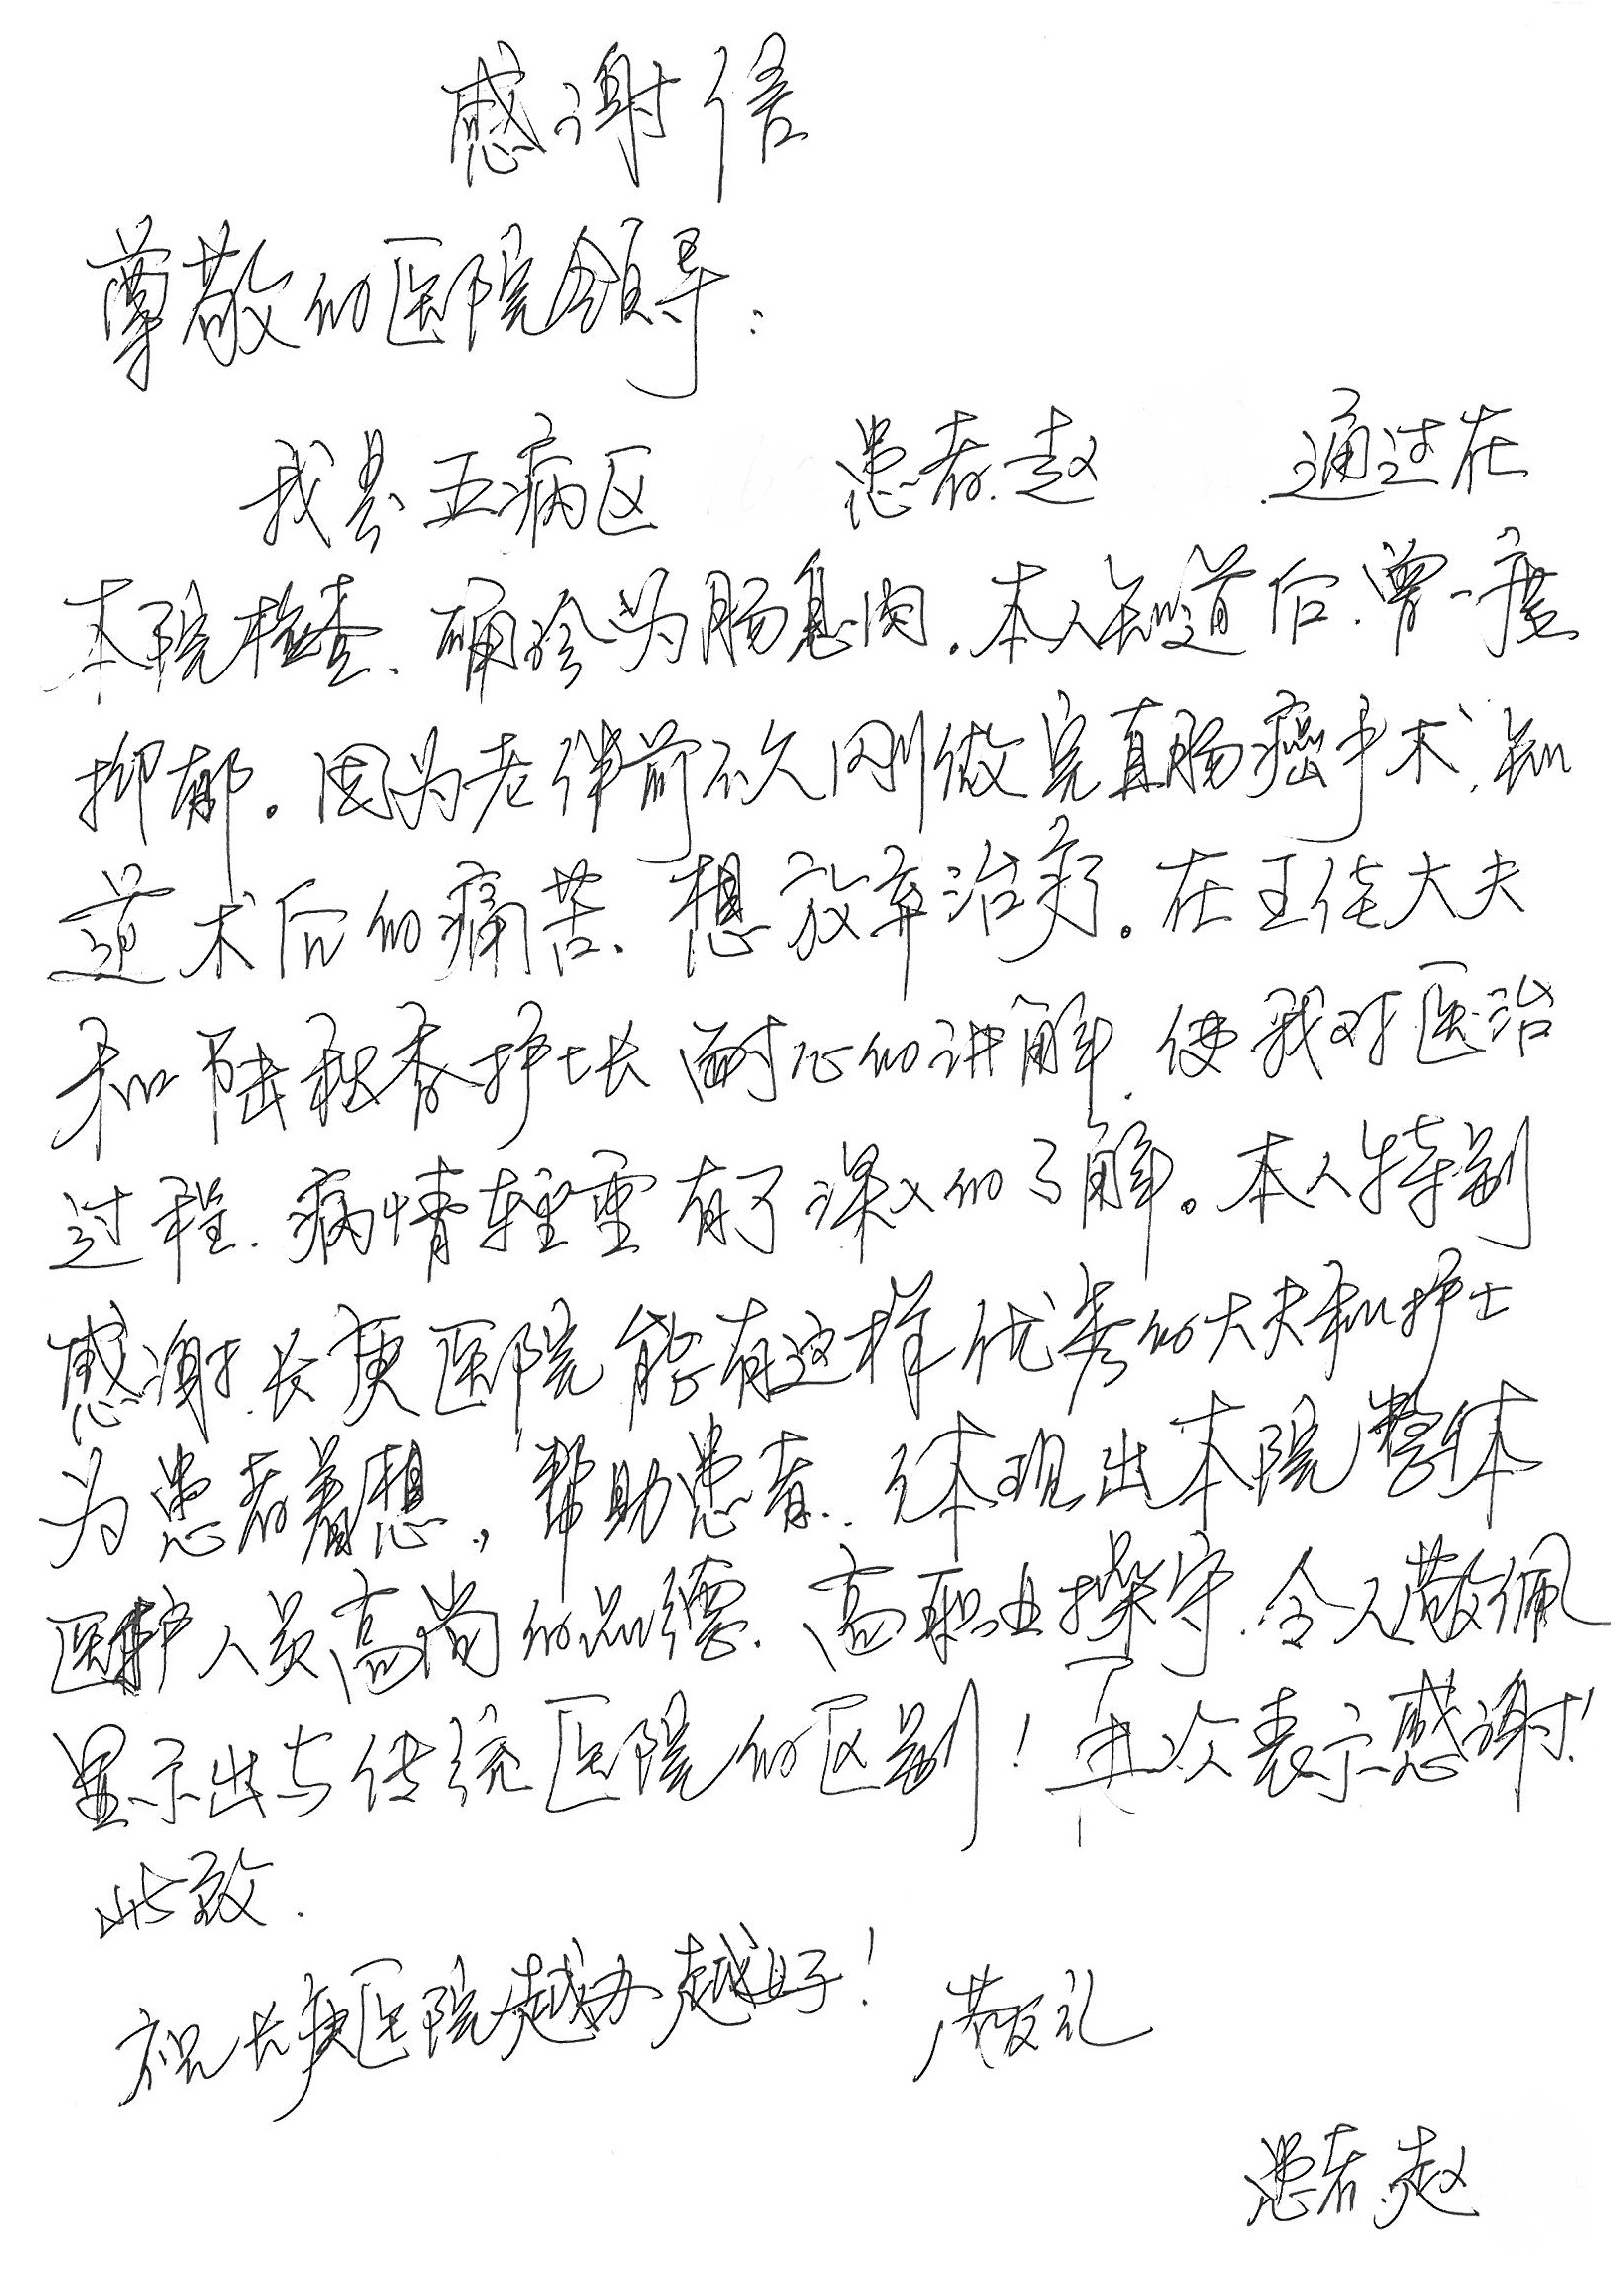 感谢信
尊敬的医院领导：
我是五病区 患者.赵 通过在
本院检查、确诊为肠息肉.本人知道后.曾一度
抑郁。因为老伴前不久刚做完直肠癌手术、知
道术后的痛苦、想放弃治疗。在王佳大夫
和陆秋香护士长耐心的讲解.使我对医治
过程.病情轻重有了深入的了解。本人特别
感谢长庚医院能有这样优秀的大夫和护士
为患者着想，帮助患者..体现出本院整体
医护人员高尚的品德.高职业操守.令人敬佩
显示出与传统医院的区别！再次表示感谢！
此致.
祝长庚医院越办越好！ 敬礼
患者.赵